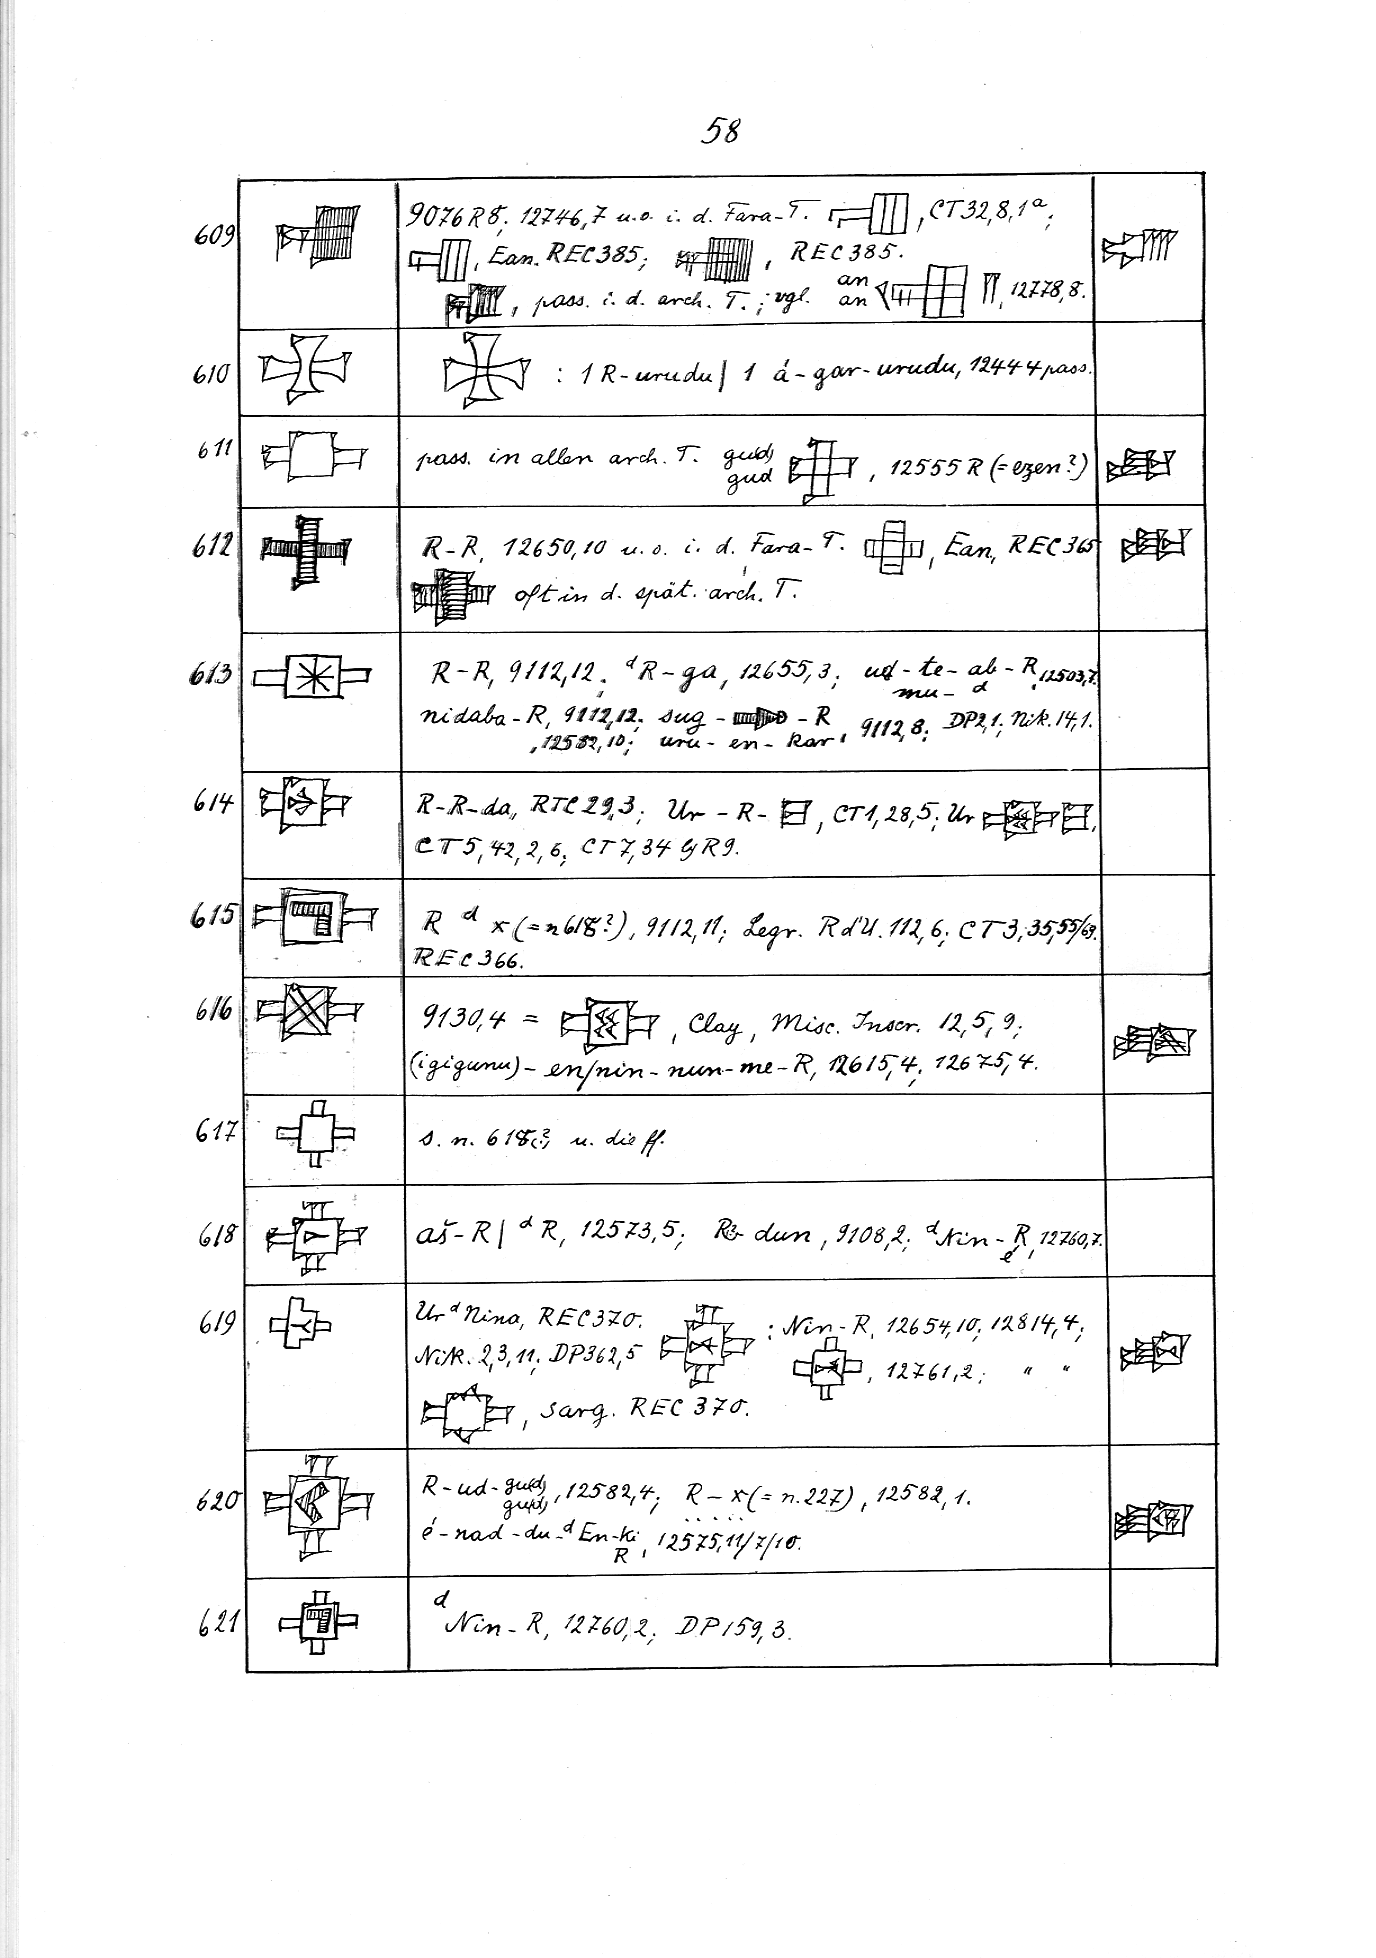 58
609
9076 R 8; 12746,7 u.o. i. d. Fara-T. , CT 32, 8, 1ª;
, Ean. REC 385; , REC 385.
, pass. i. d. arch. T.; vgl. an an , 12778,8.
610
: 1 R-urudu | 1 á-gar-urudu, 12444 pass.
611
pass. in allen arch. T. gud gud , 12555 R (= ezen?)
612
R-R, 12650,10 u. o. i. d. Fara-T. , Ean, REC 365
oft in d. spät. arch. T.
613
R-R, 9112,12; ᵈR-ga, 12655,3; ud-te-ab-R, 12503,7.
mu-d
nidaba-R, 9112,12; sug- -R 9112,8; DP 2,1; Nik. 14,1.
, 12582,10; uru-en-kar
614
R-R-da, RTC 29,3; Ur-R- , CT 1, 28, 5; Ur ,
CT 5, 42, 2, 6; CT 7, 34 R 9.
615
R ᵈ x (= n 618?), 9112,11; Legr. R d'U. 112,6; CT 3, 35, 55/63.
REC 366.
616
9130,4 = , Clay, Misc. Inscr. 12, 5, 9;
(igigunu)-en/nin-nun-me-R, 12615,4; 12675,4.
617
s. n. 618 u. die ff.
618
aš-R | ᵈR, 12573,5; R dun, 9108,2; ᵈNin-R, 12760,7.
é
619
Ur ᵈNina, REC 370. : Nin-R, 12654,10; 12814,4;
Nik. 2,3,11; DP 362,5 , 12761,2; " "
, sarg. REC 370.
620
R-ud-gud, 12582,4; R-x (= n. 227), 12582,1.
gud
é-nad-du-ᵈEn-ki, 12575,11/7/10.
R
621
ᵈNin-R, 12760,2; DP 159,3.